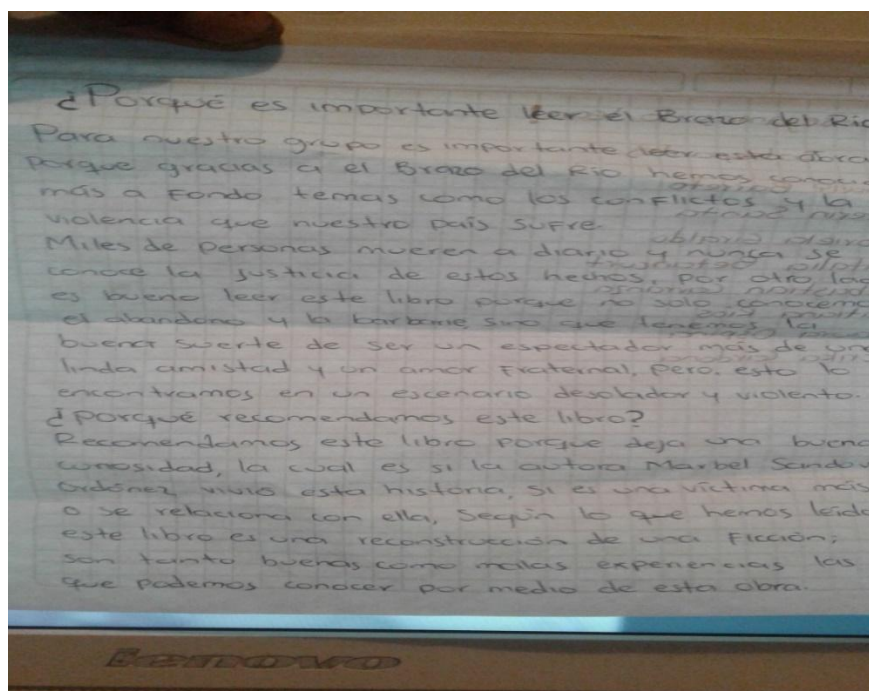 ¿Porqué es importante leer el Brazo del Rio
Para nuestro grupo es importante leer esta obra
porque gracias a el Brazo del Rio hemos
más a Fondo temas como los conflictos y la
violencia que nuestro país sufre.
Miles de personas mueren a diario y nunca se
conoce la justicia de estos hechos, por otro lad
es bueno leer este libro porque no solo conocem
el abandono y la barbarie, sino que tenemos la
buena suerte de ser un espectador más de una
linda amistad y un amor fraternal, Pero, esto lo
encontramos en un escenario desolador y violento.
¿Porqué recomendamos este libro?
Recomendamos este libro porque deja una buena
curiosidad, la cual es si la autora Marbel Sandov
Ordónez vivió esta historia, si es una víctima más
o se relaciona con ella, Según lo que hemos leído
este libro es una reconstrucción de una Ficción;
son tanto buenas como malas experiencias las
que podemos conocer por medio de esta obra.
lenovo